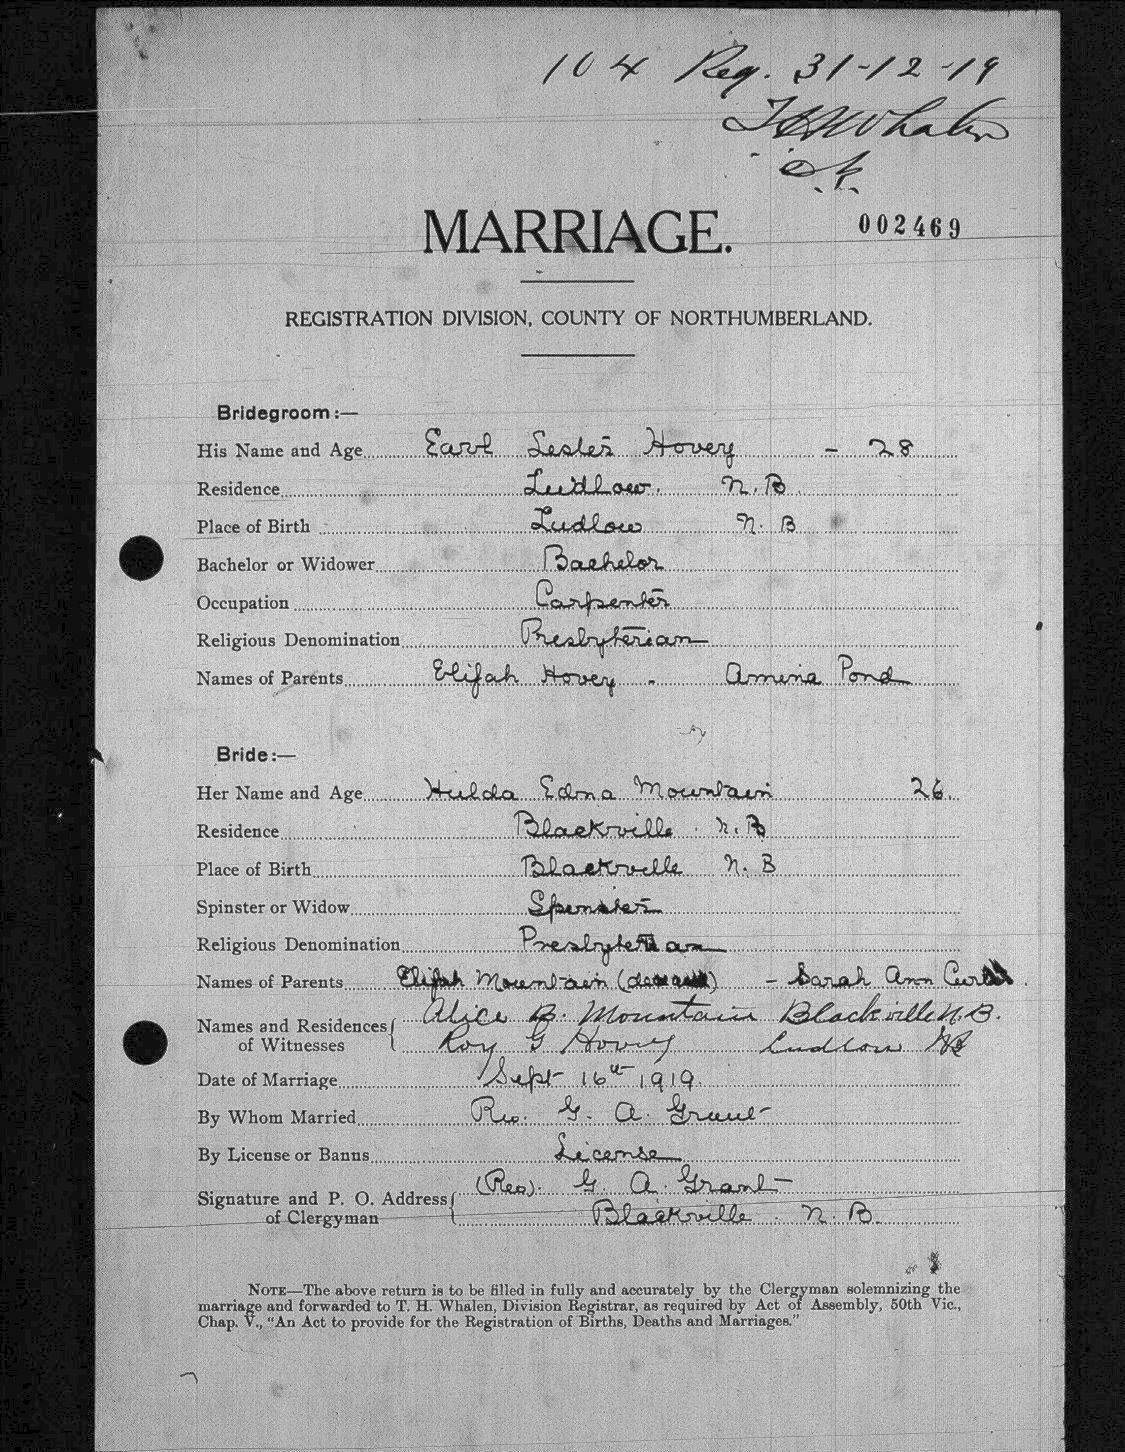 104 Reg. 31-12-19
T H Whalen
MARRIAGE.
002469
REGISTRATION DIVISION, COUNTY OF NORTHUMBERLAND.
Bridegroom:—
His Name and Age Earl Lester Hovey - 28
Residence Ludlow. N.B.
Place of Birth Ludlow N. B
Bachelor or Widower Bachelor
Occupation Carpenter
Religious Denomination Presbyterian
Names of Parents Elijah Hovey - Amina Pond
Bride:—
Her Name and Age Hulda Edna Mountain 26.
Residence Blackville. N.B
Place of Birth Blackville N. B
Spinster or Widow Spinster
Religious Denomination Presbyterian
Names of Parents Elijah Mountain - Sarah Ann
Names and Residences Alice B. Mountain Blackville N.B.
of Witnesses Roy G Hovey Ludlow NB
Date of Marriage Sept 16th 1919.
By Whom Married Rev. G. A. Grant
By License or Banns License
Signature and P. O. Address (Rev). G. A. Grant
of Clergyman Blackville. N. B.
NOTE—The above return is to be filled in fully and accurately by the Clergyman solemnizing the
marriage and forwarded to T. H. Whalen, Division Registrar, as required by Act of Assembly, 50th Vic.,
Chap. V., "An Act to provide for the Registration of Births, Deaths and Marriages."